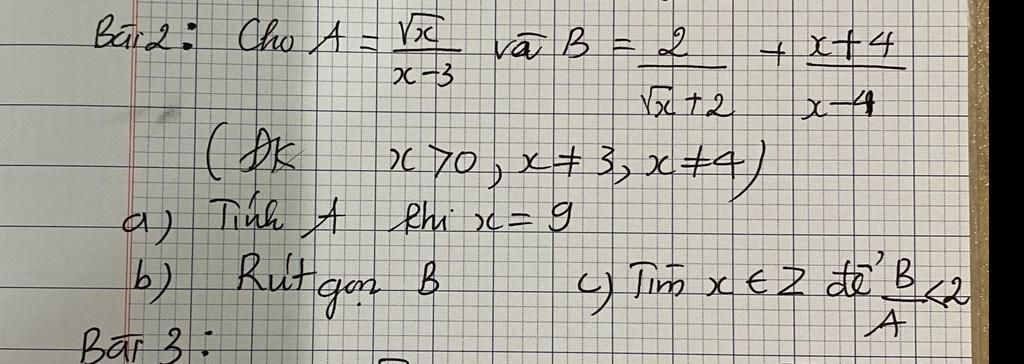 Bài 2: Cho A = √x / (x-3) và B = 2 / (√x + 2) + (x+4) / (x-4)
(ĐK x>0, x≠3, x≠4)
a) Tính A khi x = 9
b) Rút gọn B c) Tìm x ∈ Z để B/A <2
Bài 3: